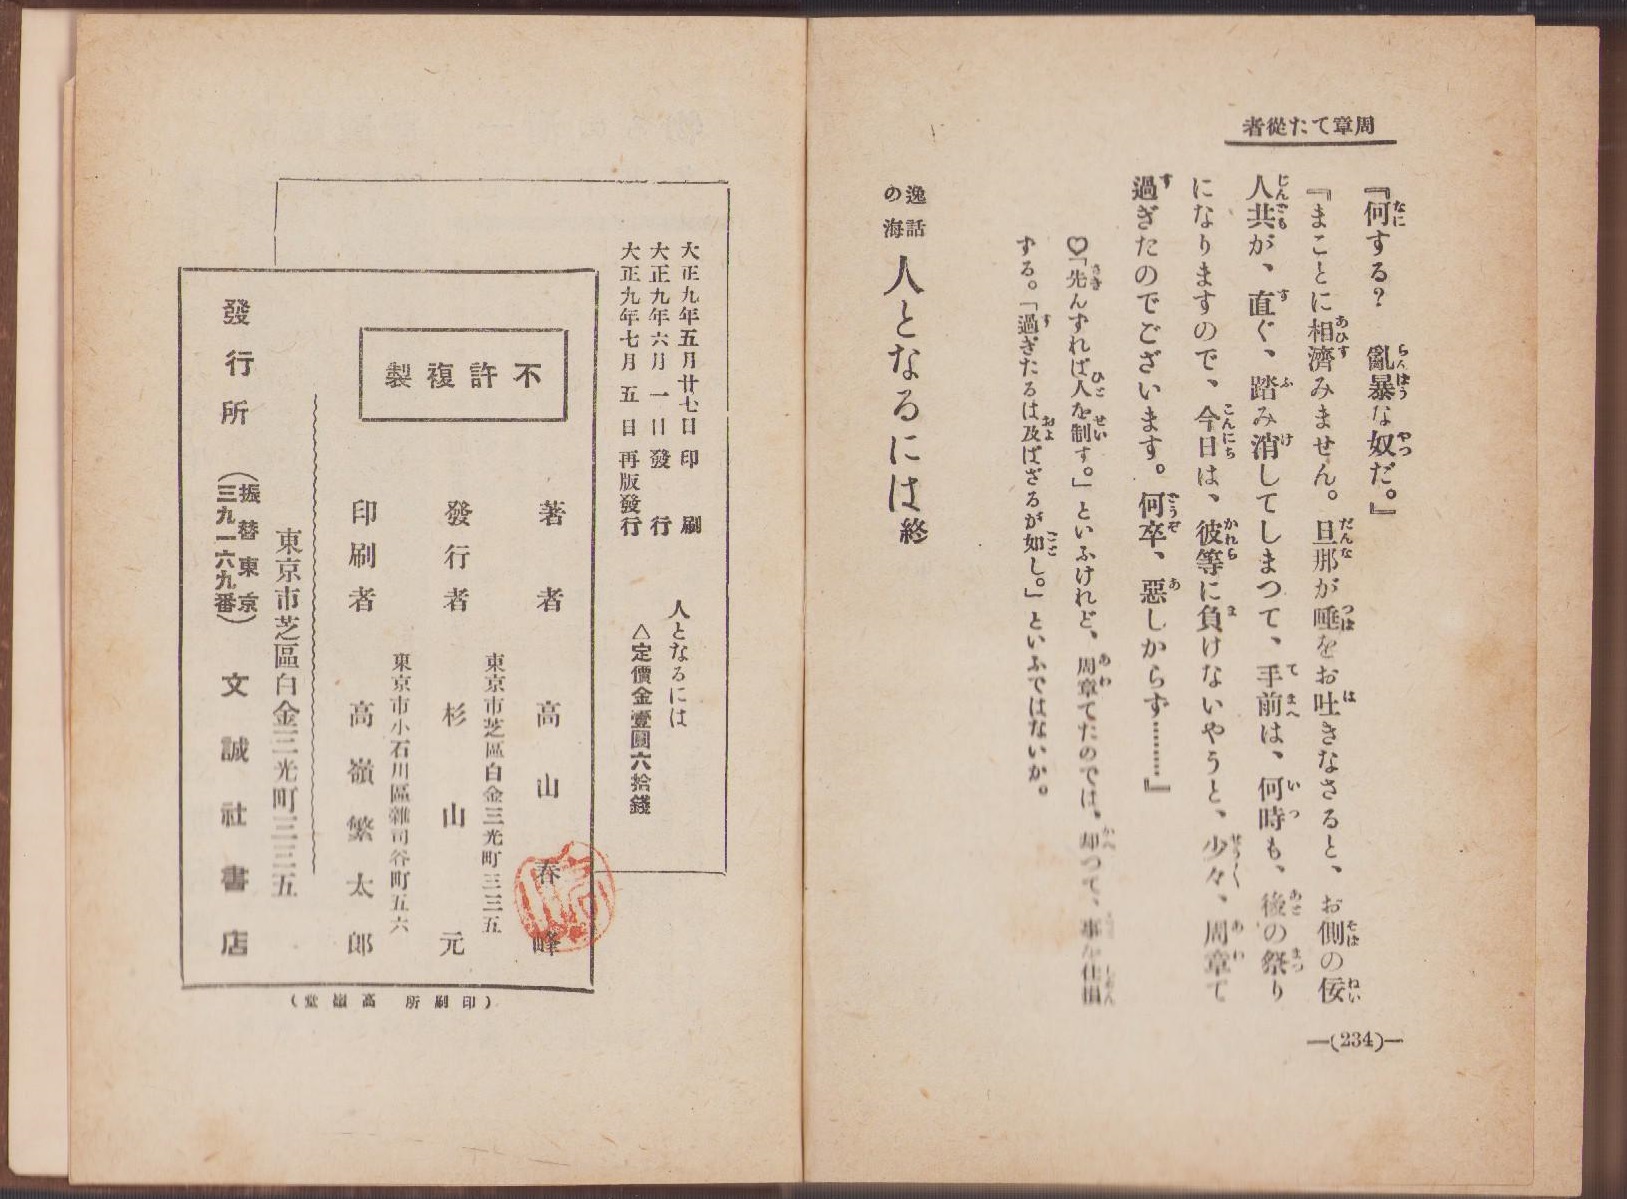 周章てた從者
『何する？　亂暴な奴だ。』
『まことに相濟みません。旦那が唾をお吐きなさると、お側の佞
人共が、直ぐ、踏み消してしまつて、手前は、何時も、後の祭り
になりますので、今日は、彼等に負けないやうと、少々、周章て
過ぎたのでございます。何卒、惡しからず………』
♡「先んずれば人を制す。」といふけれど、周章てたのでは、却つて、事を仕損
ずる。「過ぎたるは及ばざるが如し。」といふではないか。
逸話の海　人となるには　終
―(234)―
大正九年五月廿七日印刷
大正九年六月一日發行
大正九年七月五日再版發行
人となるには
△定價金壹圓六拾錢
不許複製
著者　高山春峰
東京市芝區白金三光町三三五
發行者　杉山元
東京市小石川區雜司谷町五六
印刷者　高嶺繁太郎
東京市芝區白金三光町三三五
發行所　（振替東京三九一六九番）　文誠社書店
（印刷所　高嶺堂）